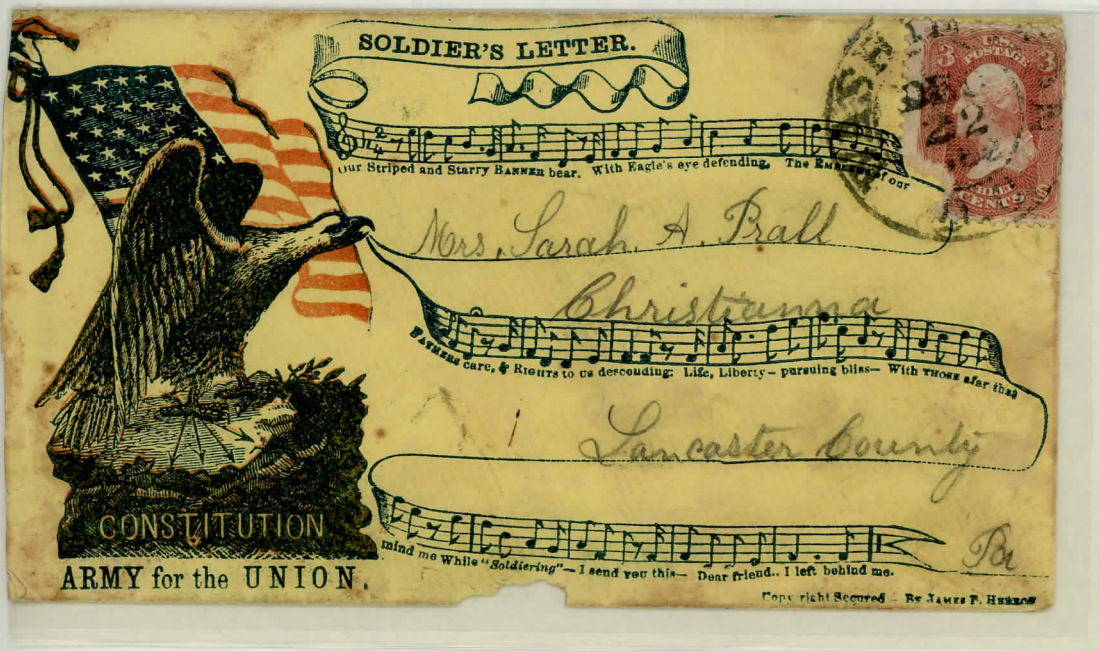 SOLDIER'S LETTER.
3 U.S. POSTAGE 3
THREE CENTS
22
Our Striped and Starry BANNER bear. With Eagle's eye defending, The EMBLEMS of our
Mrs. Sarah. A. Prall
Christianna
FATHERS care, & RIGHTS to us descouding: Life, Liberty— pursuing bliss— With THOSE afar that
Lancaster County
mind me While "Soldiering"—I send you this— Dear friend.. I left behind me.
Pa
CONSTITUTION
ARMY for the UNION.
Copy right Secured – By JAMES F.